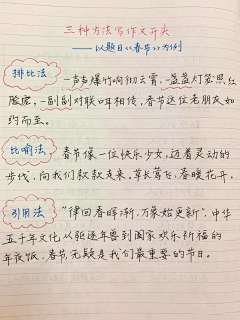 三种方法写作文开头
——以题目《春节》为例
排比法 一声声爆竹响彻云霄，一盏盏灯笼照红
脸庞，一副副对联口耳相传，春节这位老朋友如
约而至。
比喻法 春节像一位快乐少女，迈着灵动的
步伐，向我们款款走来。草长莺飞，春暖花开。
引用法 “律回春晖渐，万象始更新”，中华
五千年文化从驱逐年兽到阖家欢乐祈福的
年夜饭，春节无疑是我们最重要的节日。